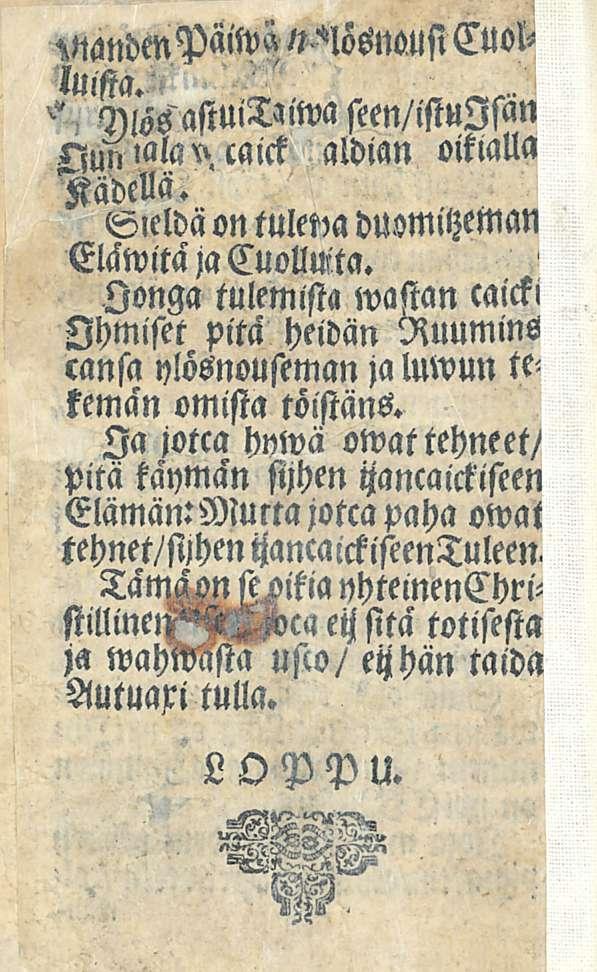 manden Päiwä ylösnousi Cuol-
luista.
Ylös astui Taiwaseen/ istu Isän
Jumalan caickiwaldian oikialla
Kädellä.
Sieldä on tulewa duomitzeman
Eläwitä ja Cuolluita.
Jonga tulemista wastan caicki
Ihmiset pitä heidän Ruumins
cansa ylösnouseman ja luwun te-
kemän omista töistäns.
Ja jotca hywä owat tehneet/
pitä käymän sijhen ijancaickiseen
Elämän: Mutta jotca paha owat
tehnet/ sijhen ijancaickiseen Tuleen.
Tämä on se oikia yhteinen Chri-
stillinen joca eij sitä totisesta
ja wahwasta usco/ eij hän taida
Autuaxi tulla.
LOPPU.